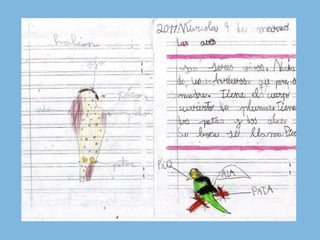 halcon
ojo
patas
2011 Miércoles 9 de marzo
Las aves
son seres vivos. Nacen
de los huevos. que pone su
madre. Tiene el cuerpo
cubierto de plumas. Tiene
dos patas y dos alas
su boca se llama Pico
PICO
ALA
PATA